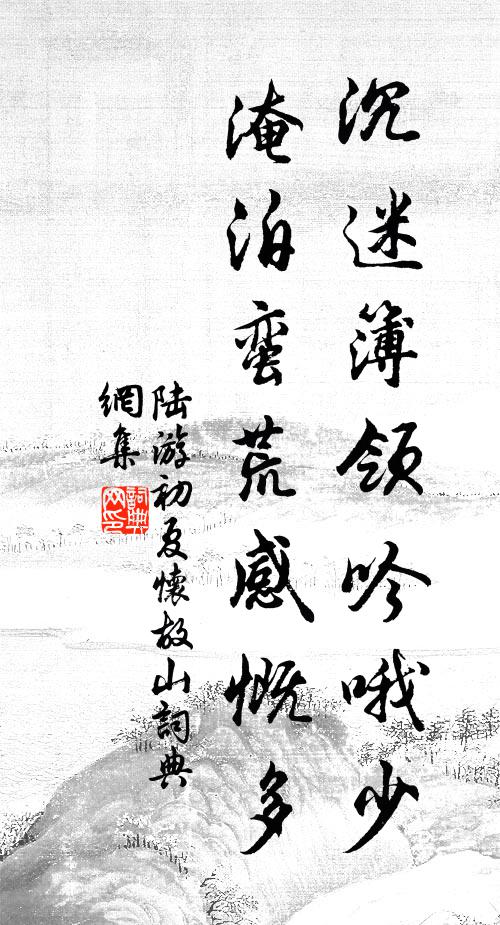 沉迷簿领吟哦少
淹泊蛮荒感慨多
陆游初夏怀故山词典
網集
詞典
网印